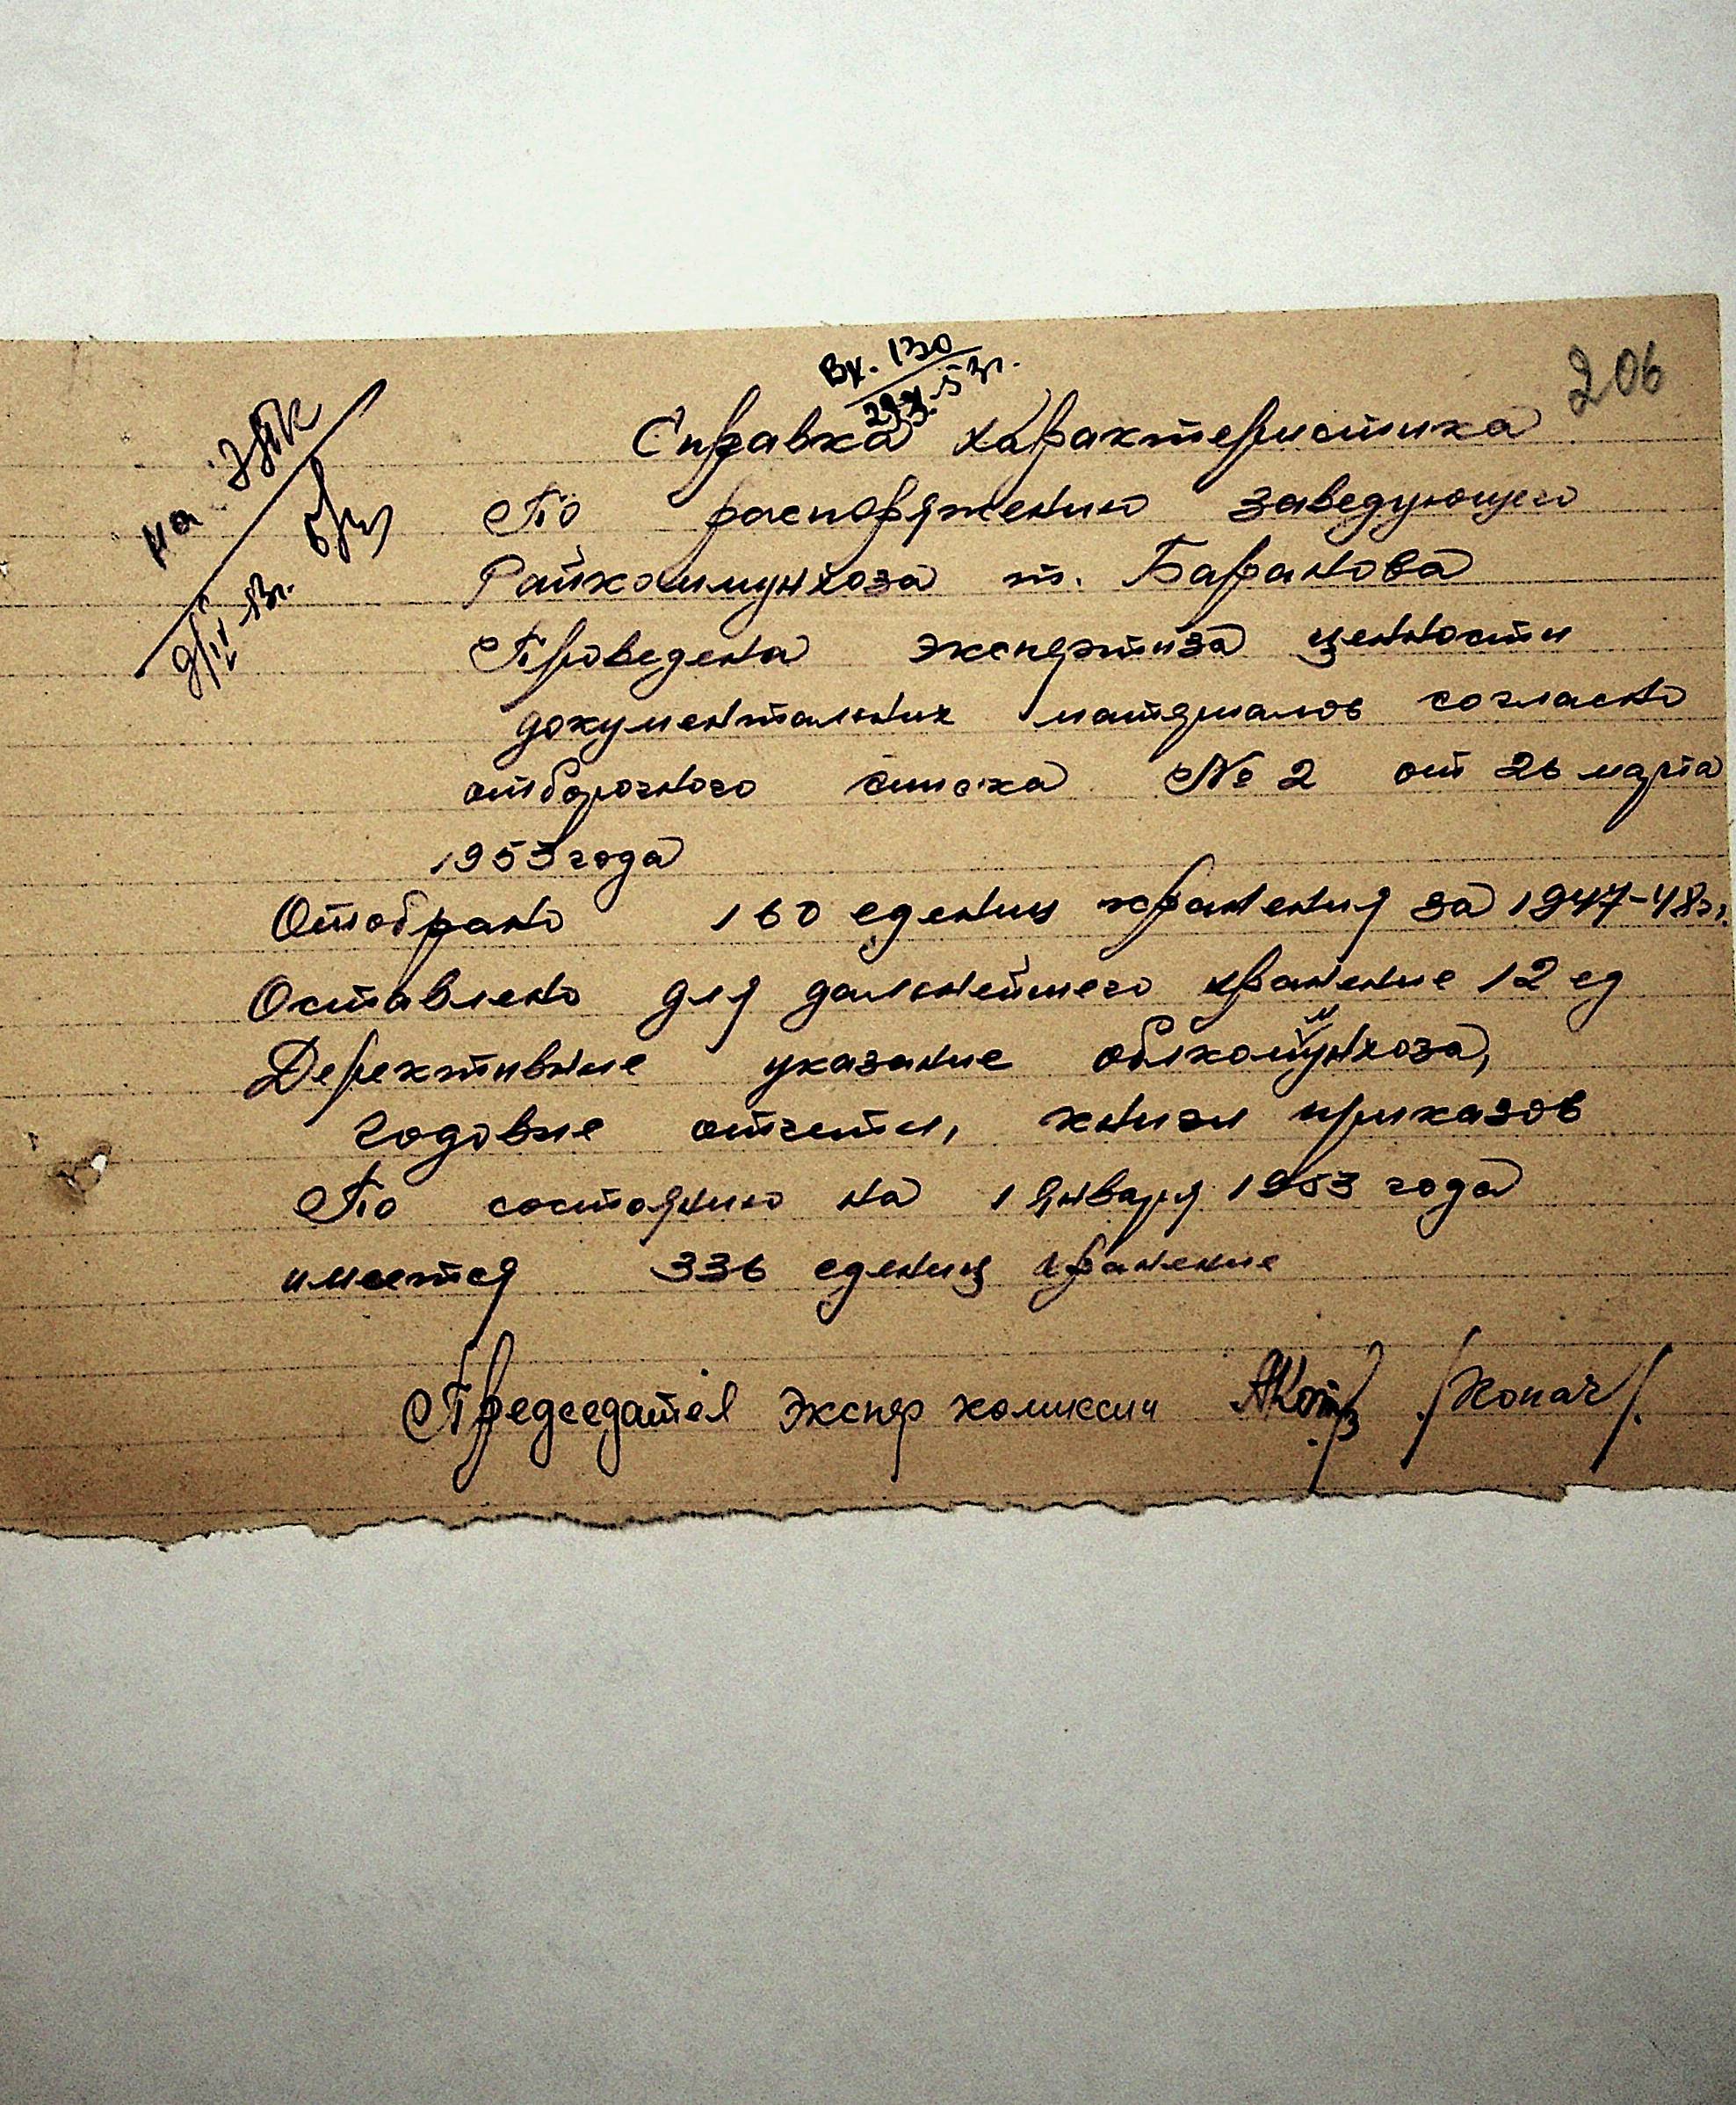 206
Вх. 130
на ЭПК
Справка характеристика
По распоряжению заведующего
Райкоммунхоза т. Баранова
Проведена экспертиза ценности
документальних материалов согласно
отборочного списка № 2 от 26 марта
1953 года
Отобрано 160 едениц хранения за 1947-48г.
Оставлено для дальнейшего хранение 12 ед
Дерективные указание облкоммунхоза,
годовые отчеты, книги приказов
По состоянию на 1 января 1953 года
имеется 336 едениц хранение
Председател экспер комиссии /Копач/.